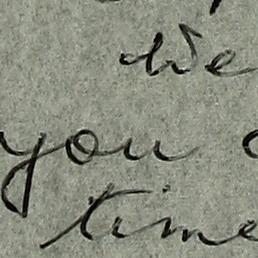 die
you
time